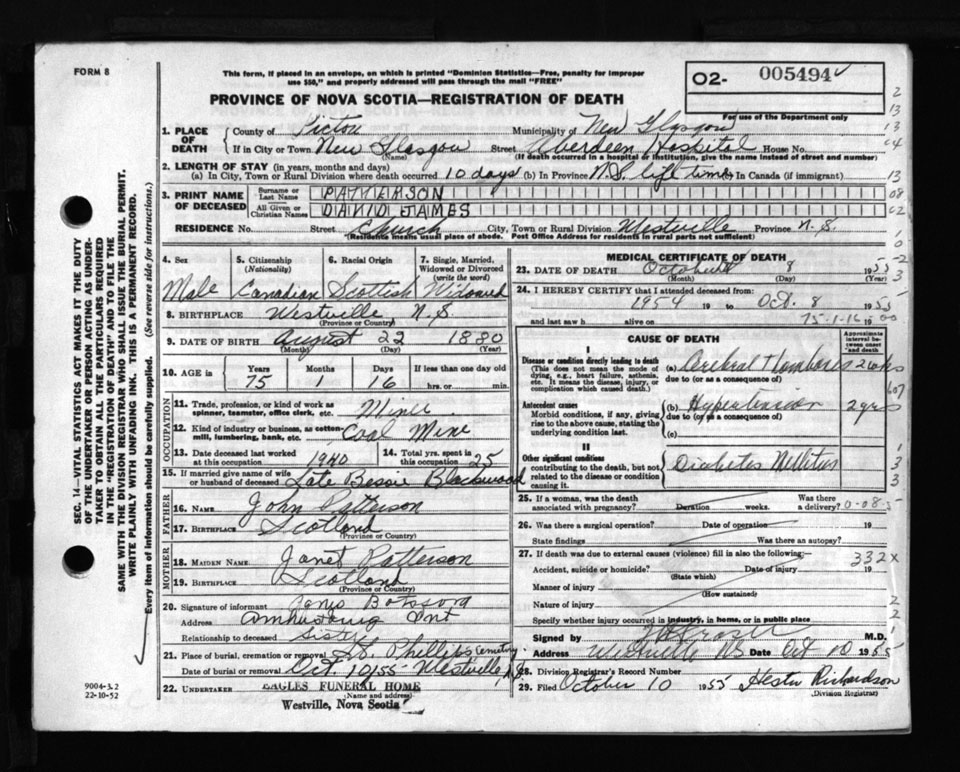 FORM 8
This form, if placed in an envelope, on which is printed "Dominion Statistics—Free, penalty for improper
use $50," and properly addressed will pass through the mail "FREE"
O2- 005494
For use of the Department only
PROVINCE OF NOVA SCOTIA—REGISTRATION OF DEATH
1. PLACE OF DEATH
County of Pictou Municipality of New Glasgow
If in City or Town New Glasgow Street Aberdeen Hospital House No.
(Name) (If death occurred in a hospital or institution, give the name instead of street and number)
2. LENGTH OF STAY (in years, months and days)
(a) In City, Town or Rural Division where death occurred 10 days (b) In Province N.S. life time In Canada (if immigrant)
3. PRINT NAME OF DECEASED
Surname or Last Name PATTERSON
All Given or Christian Names DAVID JAMES
RESIDENCE No. Street Church City, Town or Rural Division Westville Province N.S.
(Residence means usual place of abode. Post Office Address for residents in rural parts not sufficient)
4. Sex Male
5. Citizenship (Nationality) Canadian
6. Racial Origin Scottish
7. Single, Married, Widowed or Divorced (write the word) Widowed
8. BIRTHPLACE Westville N.S.
(Province or Country)
9. DATE OF BIRTH August 22 1880
(Month) (Day) (Year)
10. AGE in Years Months Days If less than one day
75 1 16 hrs. or min.
OCCUPATION
11. Trade, profession or kind of work as spinner, teamster, office clerk, etc. Miner
12. Kind of industry or business, as cotton-mill, lumbering, bank, etc. Coal Mine
13. Date deceased last worked at this occupation 1940
14. Total yrs. spent in this occupation 25
15. If married give name of wife or husband of deceased Late Bessie Blackwood
FATHER
16. Name John Patterson
17. Birthplace Scotland
(Province or Country)
MOTHER
18. MAIDEN NAME Janet Patterson
19. BIRTHPLACE Scotland
(Province or Country)
20. Signature of informant
Address Ont
Relationship to deceased Sister
21. Place of burial, cremation or removal St. Phillips Cemetery
Date of burial or removal Oct. 10/55 Westville, N.S.
22. UNDERTAKER EAGLES FUNERAL HOME
(Name and address)
Westville, Nova Scotia
MEDICAL CERTIFICATE OF DEATH
23. DATE OF DEATH October 8 1955
(Month) (Day) (Year)
24. I HEREBY CERTIFY that I attended deceased from
1954 19 to Oct. 8 1955
and last saw h alive on 19
75-1-16
CAUSE OF DEATH
Approximate interval between onset and death
I
Disease or condition directly leading to death
(This does not mean the mode of dying, e.g., heart failure, asthenia, etc. It means the disease, injury, or complication which caused death.)
(a) Cerebral Thombosis 2 wks
due to (or as a consequence of)
Antecedent causes
Morbid conditions, if any, giving rise to the above cause, stating the underlying condition last.
(b) Hypertension 2 yrs
due to (or as a consequence of)
(c)
II
Other significant conditions
contributing to the death, but not related to the disease or condition causing it.
Diabetes Mellitus
25. If a woman, was the death associated with pregnancy? Duration weeks. Was there a delivery?
26. Was there a surgical operation? Date of operation 19
State findings Was there an autopsy?
27. If death was due to external causes (violence) fill in also the following:— 332X
Accident, suicide or homicide? Date of injury 19
(State which)
Manner of injury
(How sustained)
Nature of injury
Specify whether injury occurred in industry, in home, or in public place
Signed by M.D.
Address Westville NS Date Oct 10 1955
28. Division Registrar's Record Number
29. Filed October 10 1955 Hester Richardson
(Division Registrar)
SEC. 14—VITAL STATISTICS ACT MAKES IT THE DUTY
OF THE UNDERTAKER OR PERSON ACTING AS UNDER-
TAKER TO OBTAIN ALL THE PARTICULARS REQUIRED
IN THE "REGISTRATION OF DEATH" AND TO FILE THE
SAME WITH THE DIVISION REGISTRAR WHO SHALL ISSUE THE BURIAL PERMIT.
WRITE PLAINLY WITH UNFADING INK. THIS IS A PERMANENT RECORD.
Every item of information should be carefully supplied. (See reverse side for instructions.)
9004-3.2
22-10-52